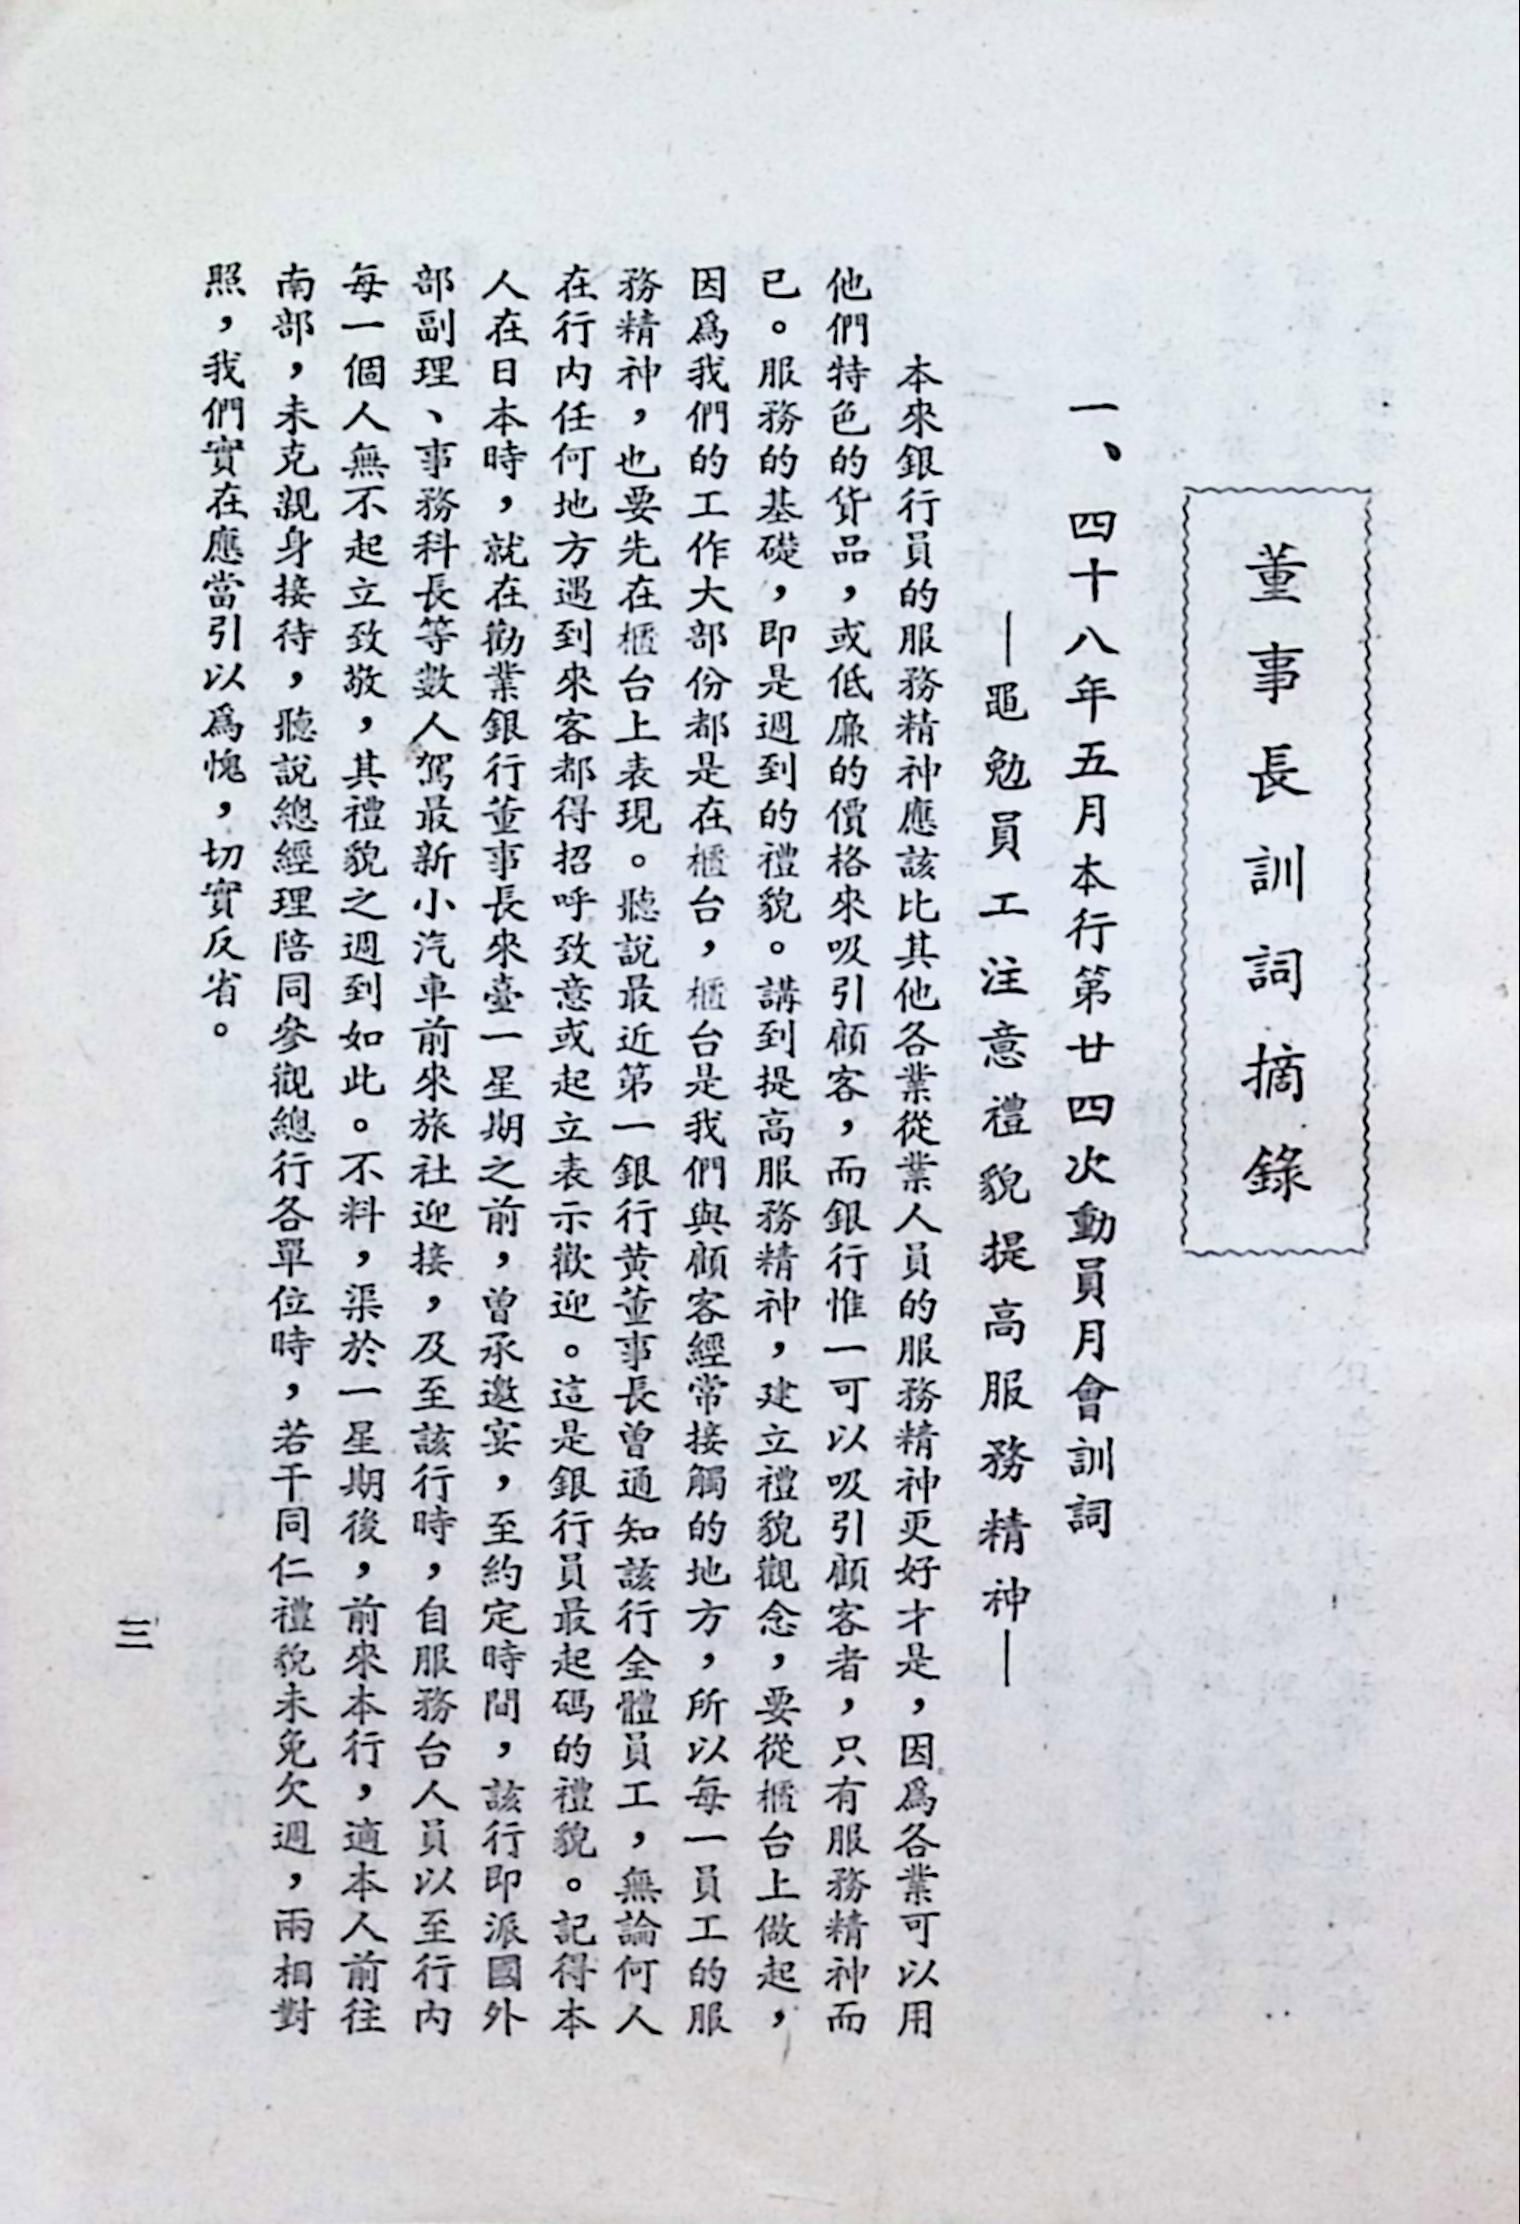 董事長訓詞摘錄
一、四十八年五月本行第廿四次動員月會訓詞
—黽勉員工注意禮貌提高服務精神—
本來銀行員的服務精神應該比其他各業從業人員的服務精神更好才是，因爲各業可以用
他們特色的貨品，或低廉的價格來吸引顧客，而銀行惟一可以吸引顧客者，只有服務精神而
已。服務的基礎，即是週到的禮貌。講到提高服務精神，建立禮貌觀念，要從櫃台上做起，
因爲我們的工作大部份都是在櫃台，櫃台是我們與顧客經常接觸的地方，所以每一員工的服
務精神，也要先在櫃台上表現。聽說最近第一銀行黃董事長曾通知該行全體員工，無論何人
在行內任何地方遇到來客都得招呼致意或起立表示歡迎。這是銀行員最起碼的禮貌。記得本
人在日本時，就在勸業銀行董事長來臺一星期之前，曾承邀宴，至約定時間，該行即派國外
部副理、事務科長等數人駕最新小汽車前來旅社迎接，及至該行時，自服務台人員以至行內
每一個人無不起立致敬，其禮貌之週到如此。不料，渠於一星期後，前來本行，適本人前往
南部，未克親身接待，聽說總經理陪同參觀總行各單位時，若干同仁禮貌未免欠週，兩相對
照，我們實在應當引以爲愧，切實反省。
三